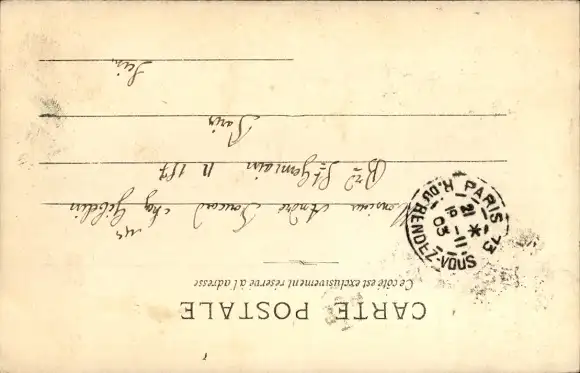 CARTE POSTALE
Ce côté est exclusivement réservé à l'adresse
Monsieur André Foucard chez Gibelin
Brd St Germain n 157
Paris
Sein
PARIS 73
R. DU RENDEZ-VOUS
21 * 16 -11 03